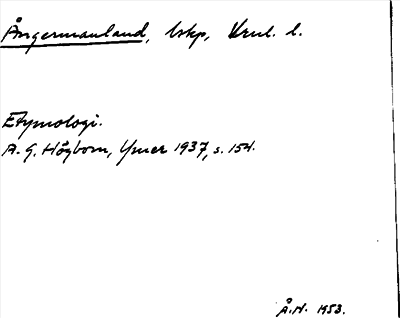 Ångermanland, lskp, Vrnl. l.
Etymologi.
A. G. Högbom, Ymer 1937, s. 154.
Å.N. 1953.